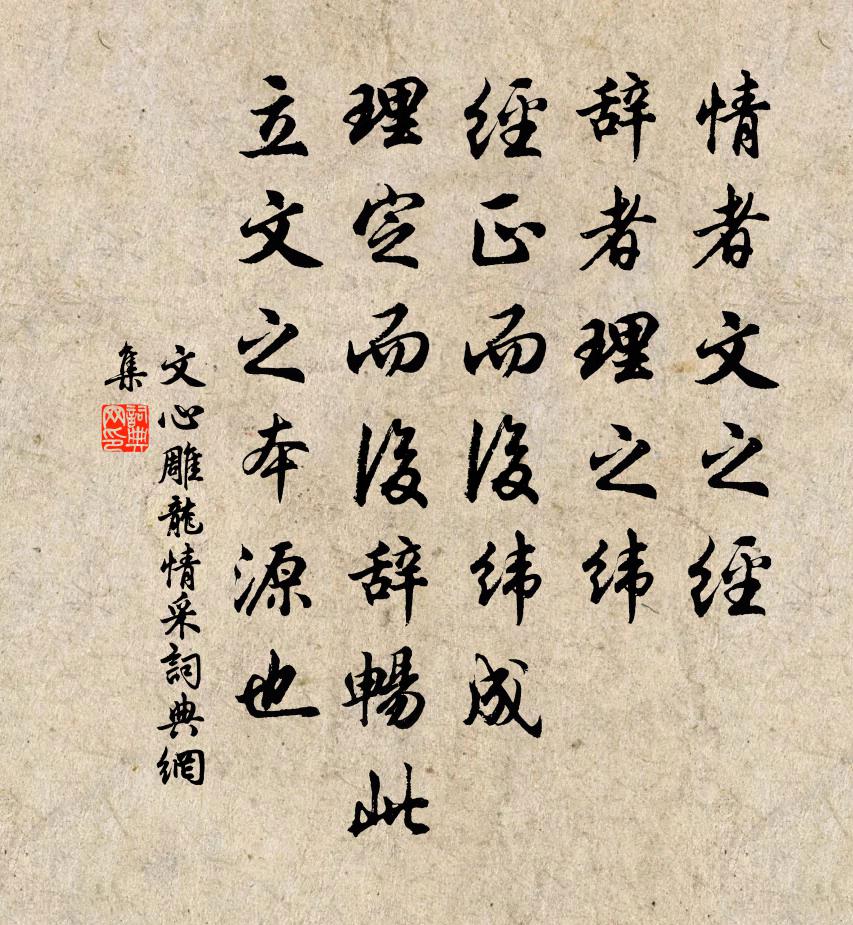 情者文之經
辞者理之纬
經正而後纬成
理定而後辞暢此
立文之本源也
文心雕龍情采詞典網
集
詞典
网印